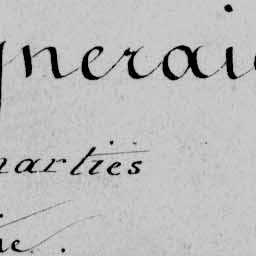 gnerai
parties
ie.